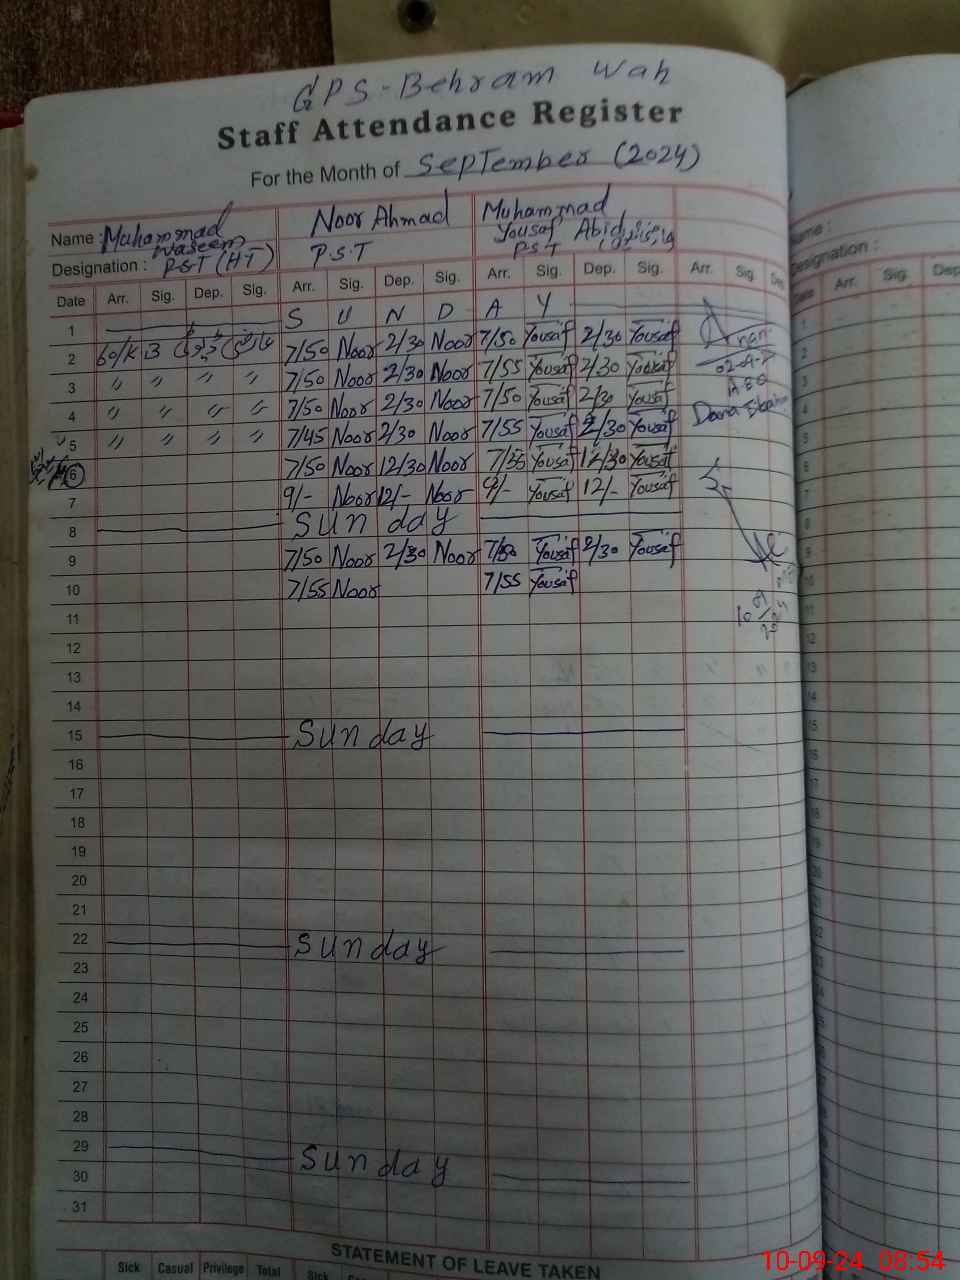 GPS-Behram Wah
Staff Attendance Register
For the Month of September (2024)
Name : Muhammad Waseem Noor Ahmad Muhammad Yousaf Abid
Designation : P.S.T (HT) P.S.T P.S.T
Date Arr. Sig. Dep. Sig. Arr. Sig. Dep. Sig. Arr. Sig. Dep. Sig. Arr. Sig. Dep.
1 S U N D A Y
2 7/50 Noor 2/30 Noor 7/50 Yousaf 2/30 Yousaf
3 〃 〃 〃 〃 7/50 Noor 2/30 Noor 7/55 Yousaf 2/30 Yousaf
4 〃 〃 〃 〃 7/50 Noor 2/30 Noor 7/50 Yousaf 2/30 Yousaf
5 〃 〃 〃 〃 7/45 Noor 2/30 Noor 7/55 Yousaf 2/30 Yousaf
6 7/50 Noor 12/30 Noor 7/55 Yousaf 12/30 Yousaf
7 9/- Noor 12/- Noor 9/- Yousaf 12/- Yousaf
8 Sunday
9 7/50 Noor 2/30 Noor 7/50 Yousaf 2/30 Yousaf
10 7/55 Noor 7/55 Yousaf
11
12
13
14
15 Sunday
16
17
18
19
20
21
22 Sunday
23
24
25
26
27
28
29 Sunday
30
31
STATEMENT OF LEAVE TAKEN
Sick Casual Privilege Total Sick
Name :
Designation :
Arr. Sig. Dep
10-09-24 08:54